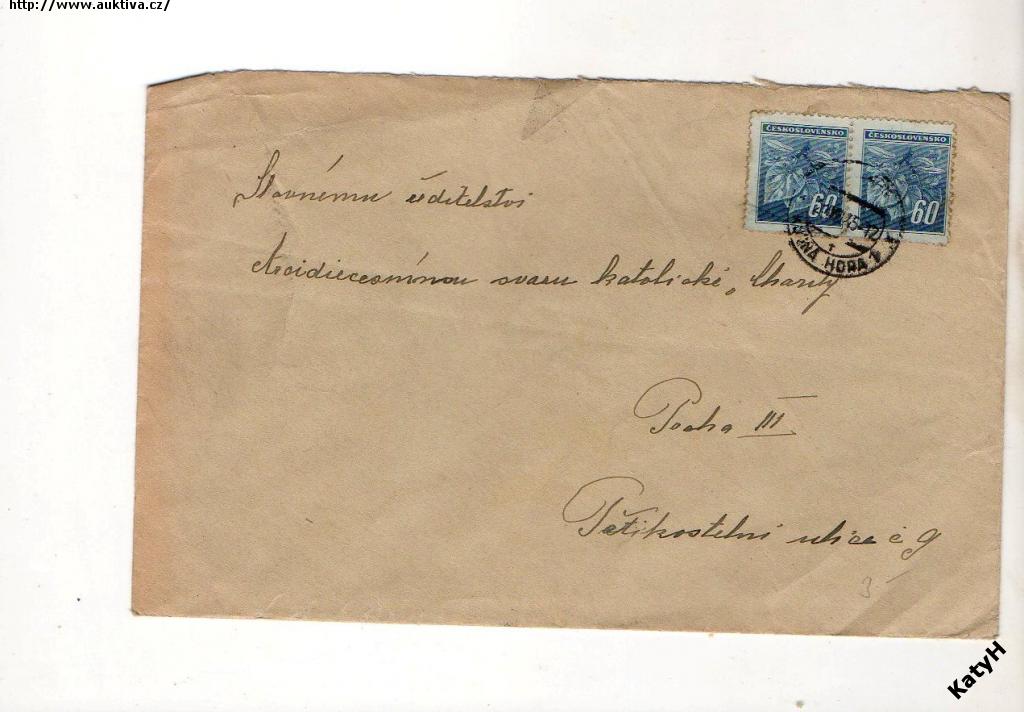 http://www.auktiva.cz/
ČESKOSLOVENSKO ČESKOSLOVENSKO
60 60
HORA 1
Slavnému ředitelství
svazu katolické Charity
Praha III
Pětikostelní ulice č 9
3
KatyH